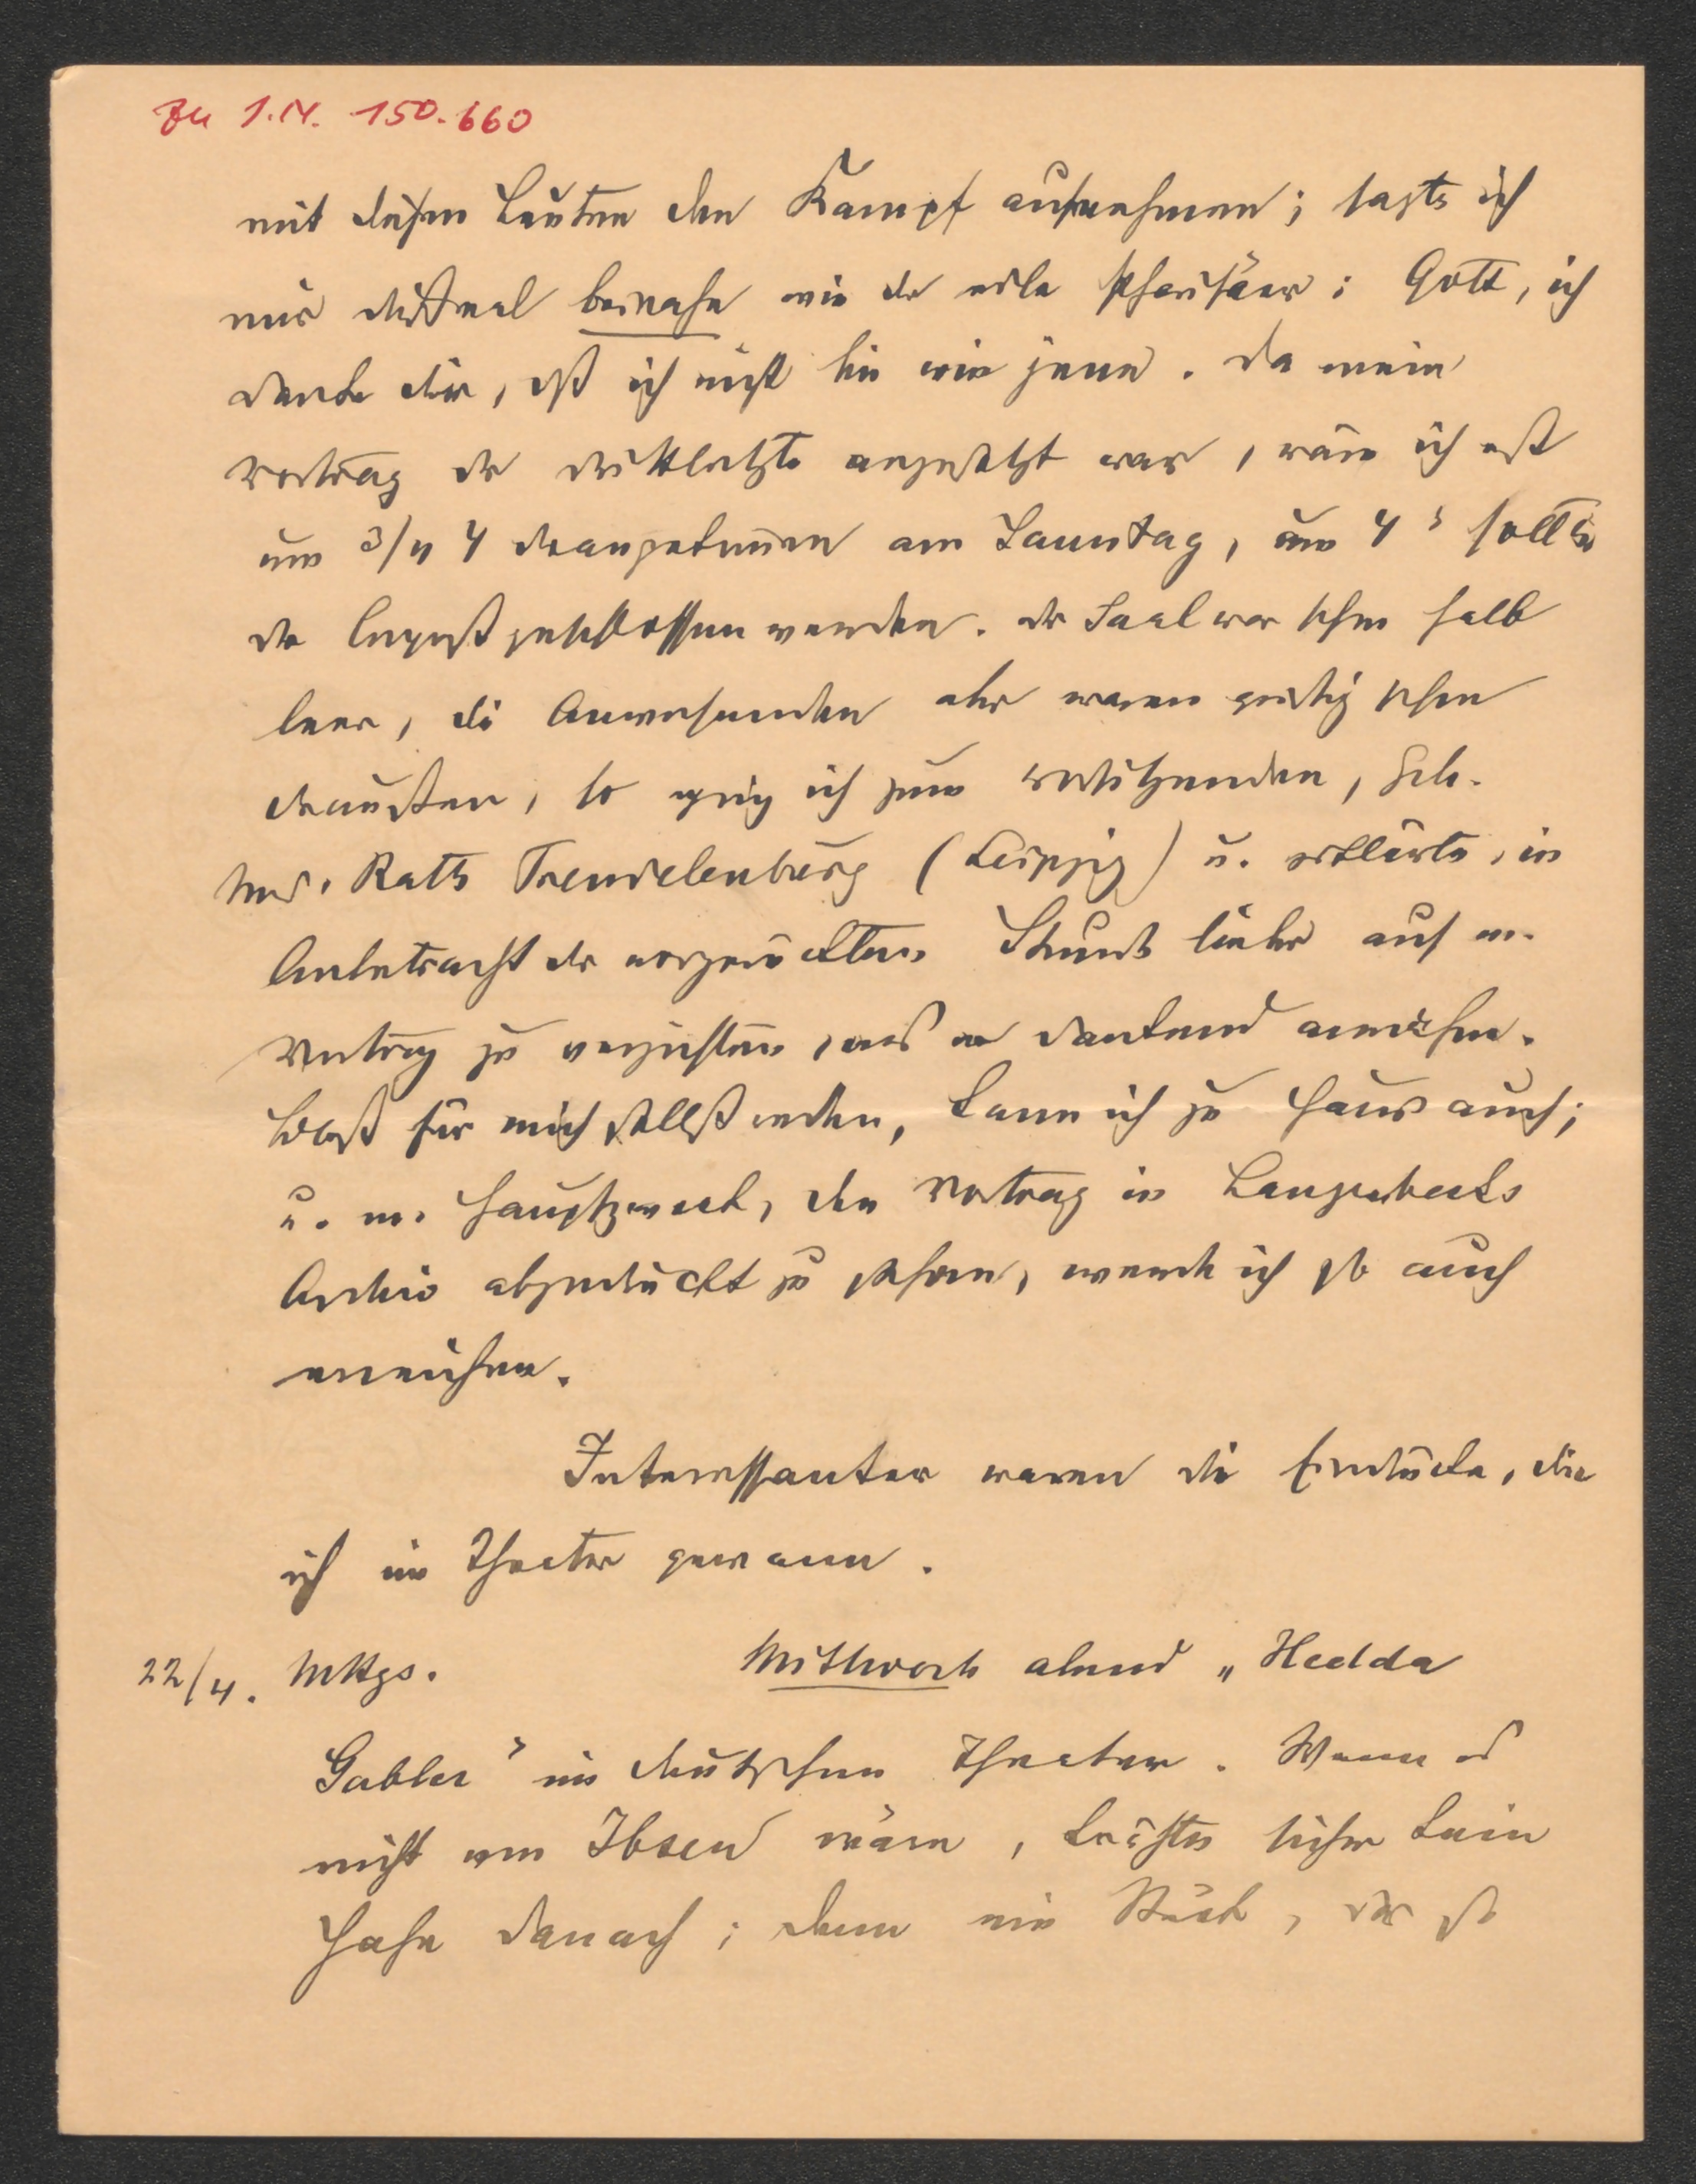 Zu I.N. 150.660
mit diesen Leuten den Kampf aufnehmen; sagte ich
mir diesmal beinahe wie der edle Pharisäer: Gott, ich
danke dir, dß ich nicht bin wie jene. Da mein
Vortrag der drittletzte angesetzt war, wäre ich erst
um 3/4 4 drangekommen am Samstag, um 4 h sollte
der Congreß geschlossen werden. Der Saal war schon halb
leer, die Anwesenden aber waren geistig schon
draußen, so ging ich zum Vorsitzenden, Geh.
Med. Rath Trendelenburg (Leipzig) u. erklärte, in
Anbetracht der vorgerückten Stunde lieber auf m.
Vortrag zu verzichten, was er dankend annahm.
Bloß für mich selbst reden, kann ich zu Haus auch;
u. m. Hauptzweck, den Vortrag in Langenbecks
Archiv abgedruckt zu sehen, werde ich so auch
erreichen.
Interessanter waren die Eindrücke, die
ich im Theater gewann.
22/4. Mttgs. Mittwoch abend „Hedda
Gabler" im deutschen Theater. Wenn es
nicht von Ibsen wäre, krähte sicher kein
Hahn danach; denn ein Stück, das so